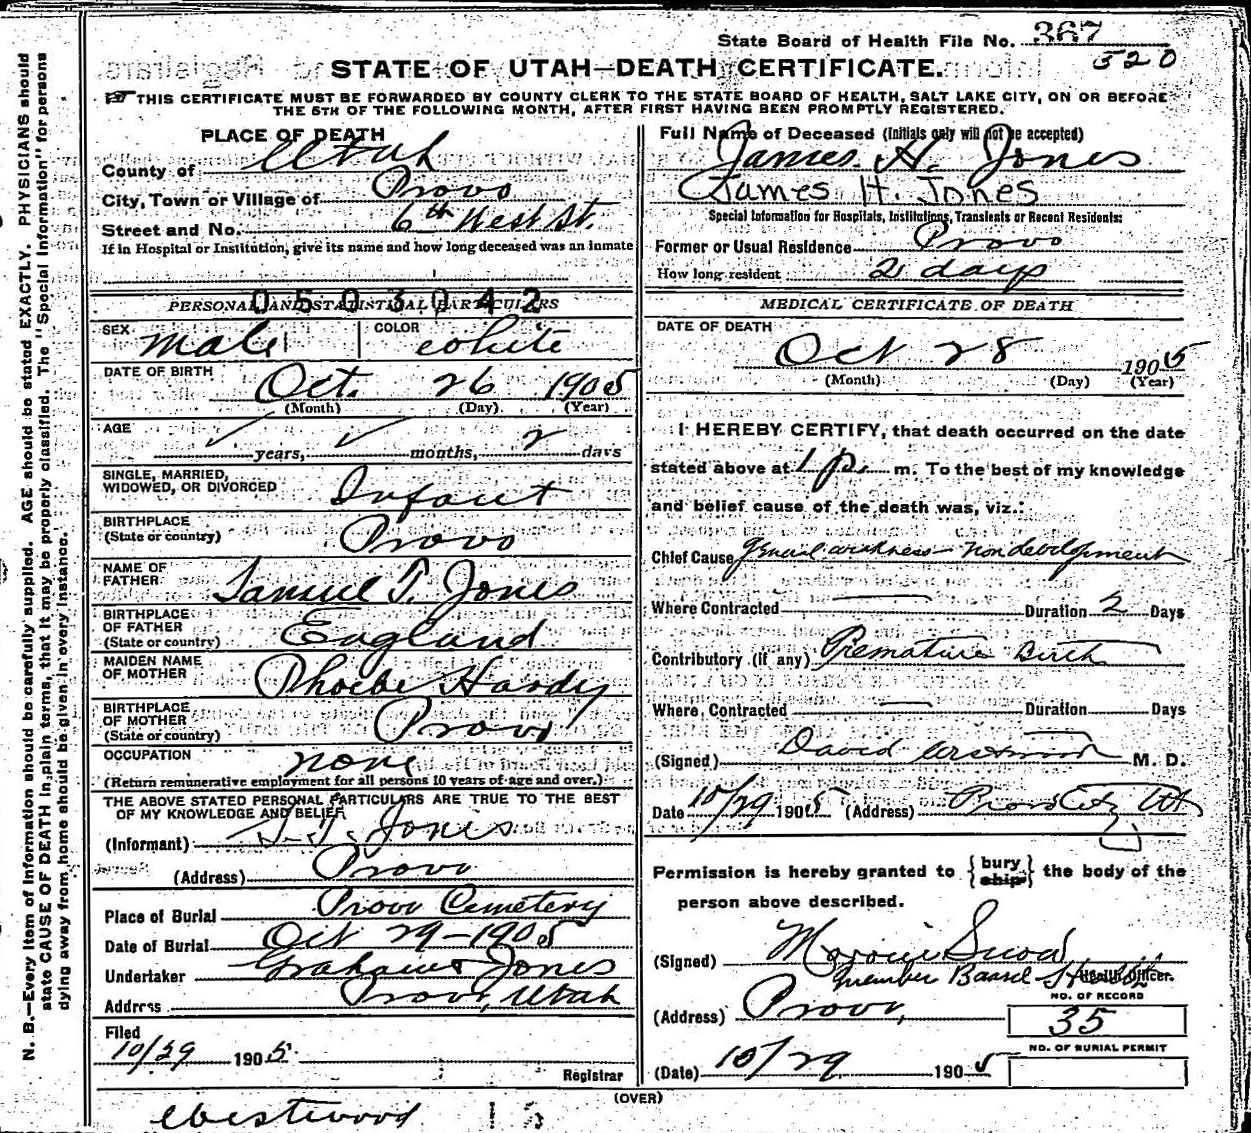 State Board of Health File No. 367
520
STATE OF UTAH—DEATH CERTIFICATE.
THIS CERTIFICATE MUST BE FORWARDED BY COUNTY CLERK TO THE STATE BOARD OF HEALTH, SALT LAKE CITY, ON OR BEFORE
THE 5TH OF THE FOLLOWING MONTH, AFTER FIRST HAVING BEEN PROMPTLY REGISTERED.
PLACE OF DEATH
County of Utah
City, Town or Village of Provo
Street and No. 6th West St.
If in Hospital or Institution, give its name and how long deceased was an inmate
0503042
PERSONAL AND STATISTICAL PARTICULARS
SEX Male COLOR white
DATE OF BIRTH Oct. 26 1905
(Month) (Day) (Year)
AGE
✓ years, ✓ months, 2 days
SINGLE, MARRIED,
WIDOWED, OR DIVORCED Infant
BIRTHPLACE
(State or country) Provo
NAME OF
FATHER Samuel T. Jones
BIRTHPLACE
OF FATHER
(State or country) England
MAIDEN NAME
OF MOTHER Phoebe Hardy
BIRTHPLACE
OF MOTHER
(State or country) Provo
OCCUPATION none
(Return remunerative employment for all persons 10 years of age and over.)
THE ABOVE STATED PERSONAL PARTICULARS ARE TRUE TO THE BEST
OF MY KNOWLEDGE AND BELIEF
(Informant) S. T. Jones
(Address) Provo
Place of Burial Provo Cemetery
Date of Burial Oct 29-1905
Undertaker Graham & Jones
Address Provo, Utah
Filed
10/29 1905
Registrar
Full Name of Deceased (Initials only will not be accepted)
James H. Jones
James H. Jones
Special Information for Hospitals, Institutions, Transients or Recent Residents:
Former or Usual Residence Provo
How long resident 2 days
MEDICAL CERTIFICATE OF DEATH
DATE OF DEATH
Oct 28 1905
(Month) (Day) (Year)
I HEREBY CERTIFY, that death occurred on the date
stated above at 1 p. m. To the best of my knowledge
and belief cause of the death was, viz.:
Chief Cause general weakness - non development
Where Contracted Duration 2 Days
Contributory (if any) Premature Birth
Where Contracted Duration Days
(Signed) David Westwood M. D.
Date 10/29 1905 (Address) Provo City Ut
Permission is hereby granted to { bury
ship } the body of the
person above described.
(Signed)
member Board Health Officer.
(Address) Provo,
NO. OF RECORD
35
NO. OF BURIAL PERMIT
(Date) 10/29 1905
(OVER)
Westwood
N. B.—Every item of information should be carefully supplied. AGE should be stated EXACTLY. PHYSICIANS should
state CAUSE OF DEATH in plain terms, that it may be properly classified. The "Special Information" for persons
dying away from home should be given in every instance.